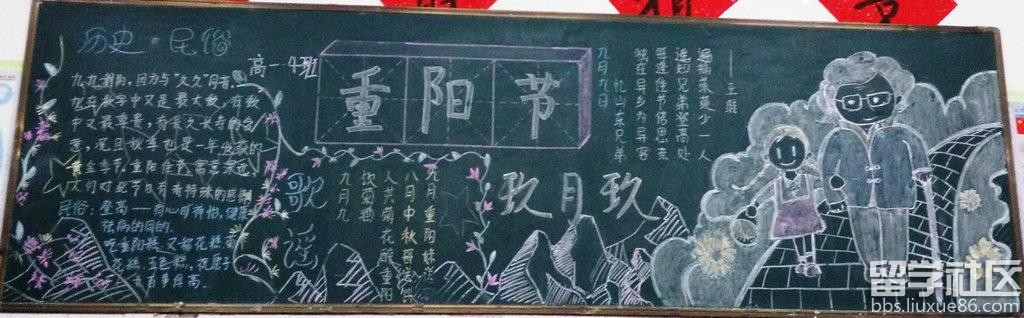 历史·民俗
高一4班
九九重阳，因为与"久久"同音，
九在数字中又是最大数，有长久长寿的含
意，况且秋季也是一年收获的
黄金季节，重阳佳节，寓意深远，
人们对此节日有着特殊的感情
民俗：登高——
祛病的目的.
吃重阳糕 又称花糕 菊
花糕 五色糕，
百事俱高.
重阳节
歌谣
九月九
饮菊酒
人共菊花醉重阳
九月重阳
八月中秋
玖月玖
九月九日
忆山东兄弟
独在异乡为异客
每逢佳节倍思亲
遥知兄弟登高处
遍插茱萸少一人
——王维
留学社区
bbs.liuxue86.com